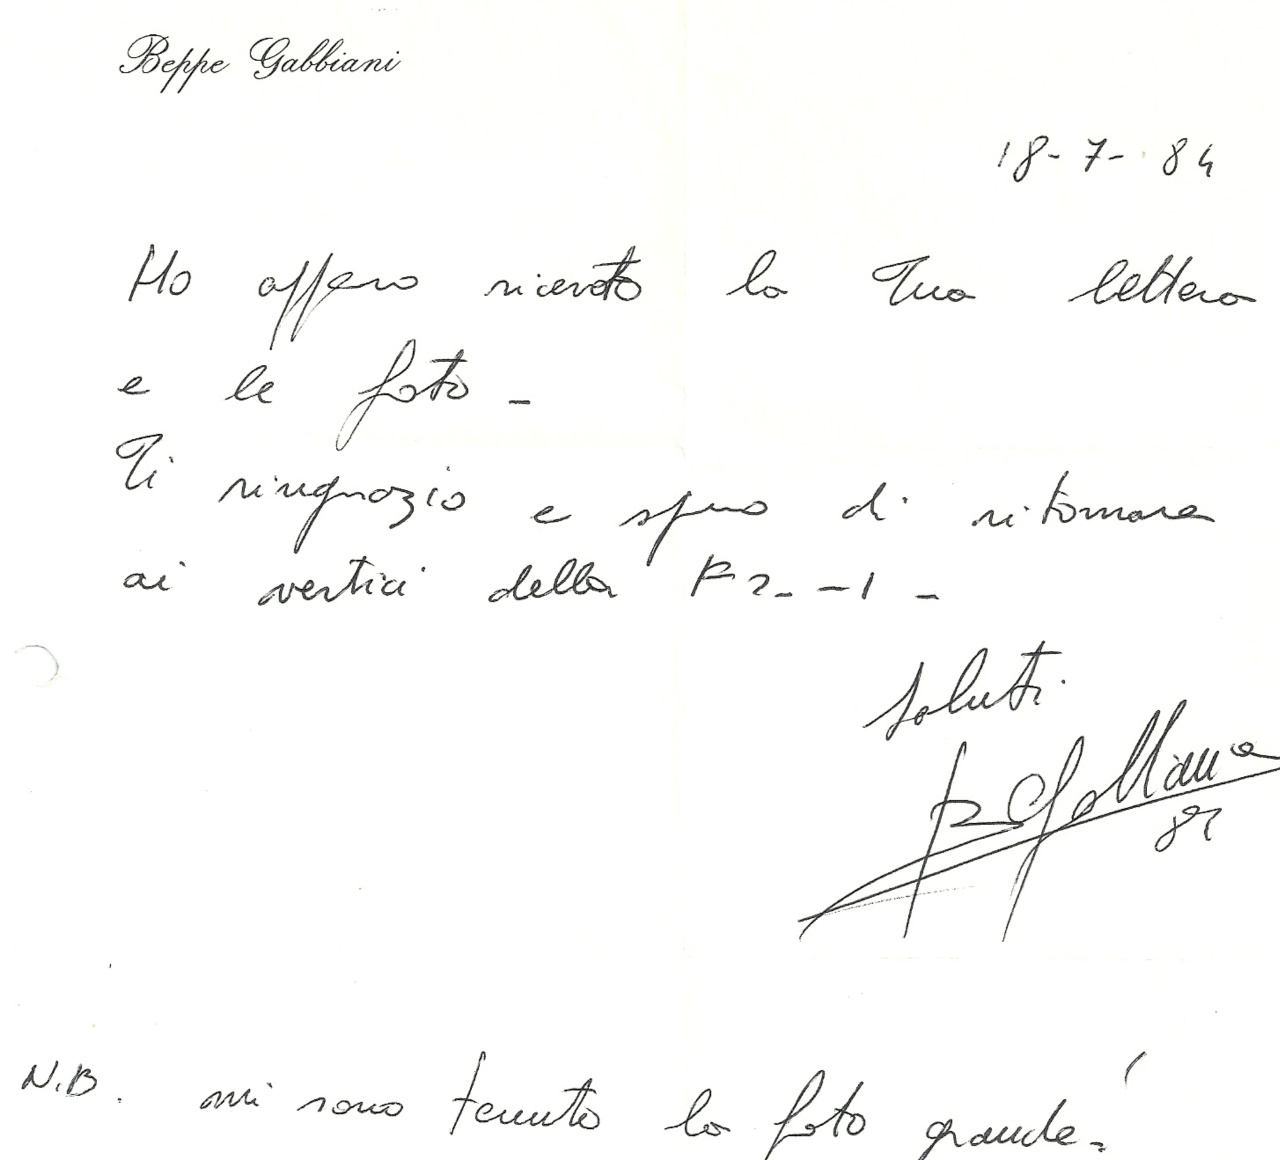 Beppe Gabbiani
18-7-84
Ho appena ricevuto la Tua lettera
e le foto -
Ti ringrazio e spero di ritornare
ai vertici della F2 - - 1 -
Saluti
B Gabbiani
84
N.B. mi sono tenuto la foto grande!